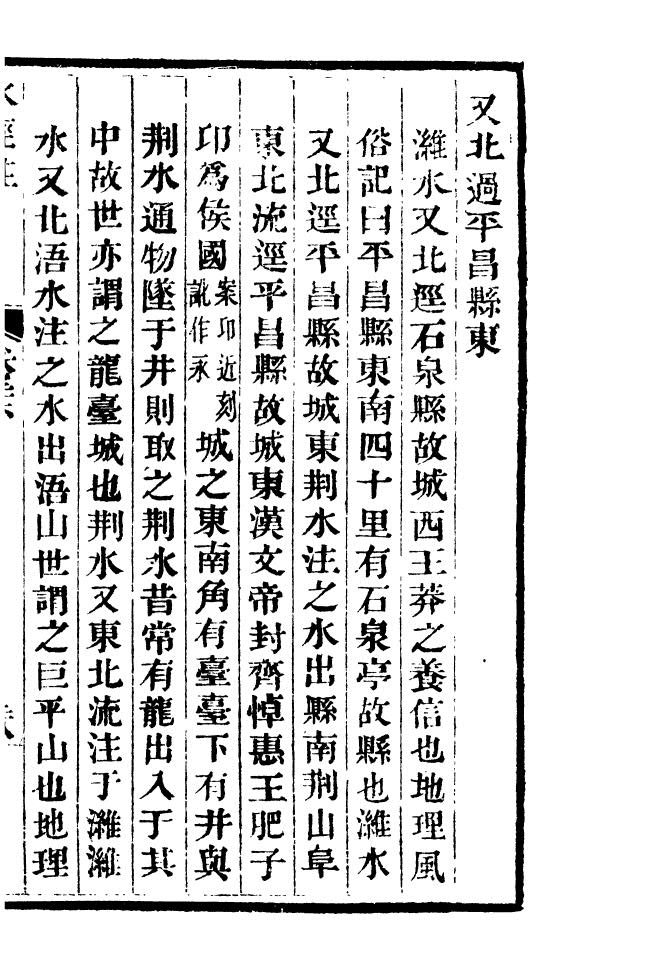 又北過平昌縣東
濰水又北逕石泉縣故城西王莽之養信也地理風
俗記曰平昌縣東南四十里有石泉亭故縣也濰水
又北逕平昌縣故城東荆水注之水出縣南荆山阜
東北流逕平昌縣故城東漢文帝封齊悼惠王肥子
卬爲侯國案卬近刻訛作永城之東南角有臺臺下有井與
荆水通物墜于井則取之荆水昔常有龍出入于其
中故世亦謂之龍臺城也荆水又東北流注于濰濰
水又北浯水注之水出浯山世謂之巨平山也地理
水經注